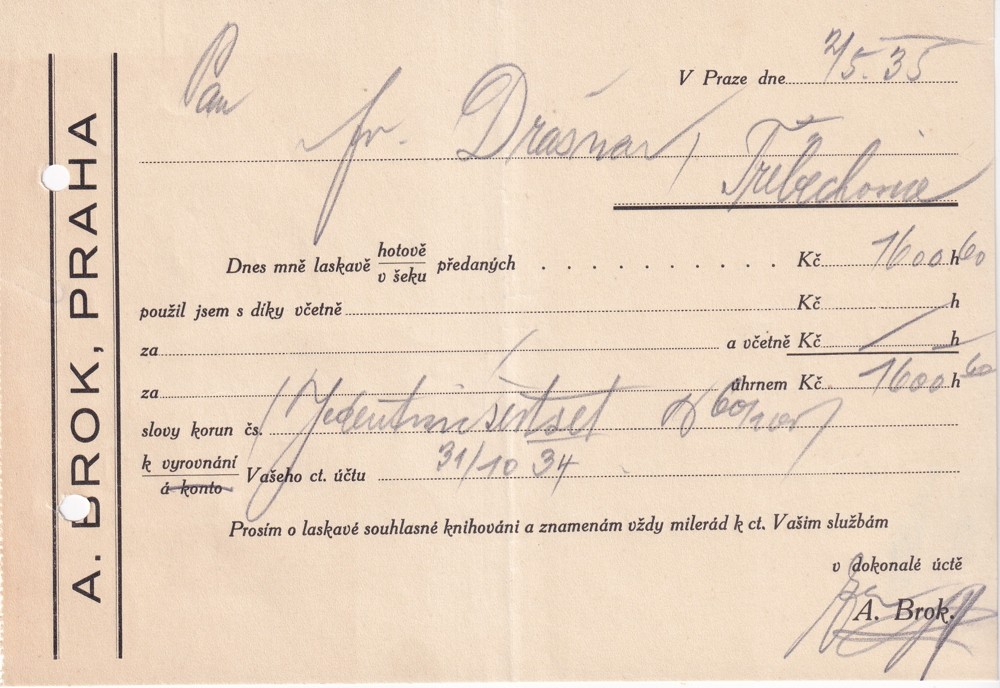 A. BROK, PRAHA
V Praze dne 2/5. 35
Pan
fr. Drásnar,
Třebechovice
Dnes mně laskavě hotově v šeku předaných . . . . . . . . . . Kč 1600 h 60
použil jsem s díky včetně Kč h
za a včetně Kč — h
za úhrnem Kč 1600 h 60
slovy korun čs. Jedentisícšestset 60/100
k vyrovnání á konto Vašeho ct. účtu 31/10 34
Prosím o laskavé souhlasné knihování a znamenám vždy milerád k ct. Vašim službám
v dokonalé úctě
A. Brok.